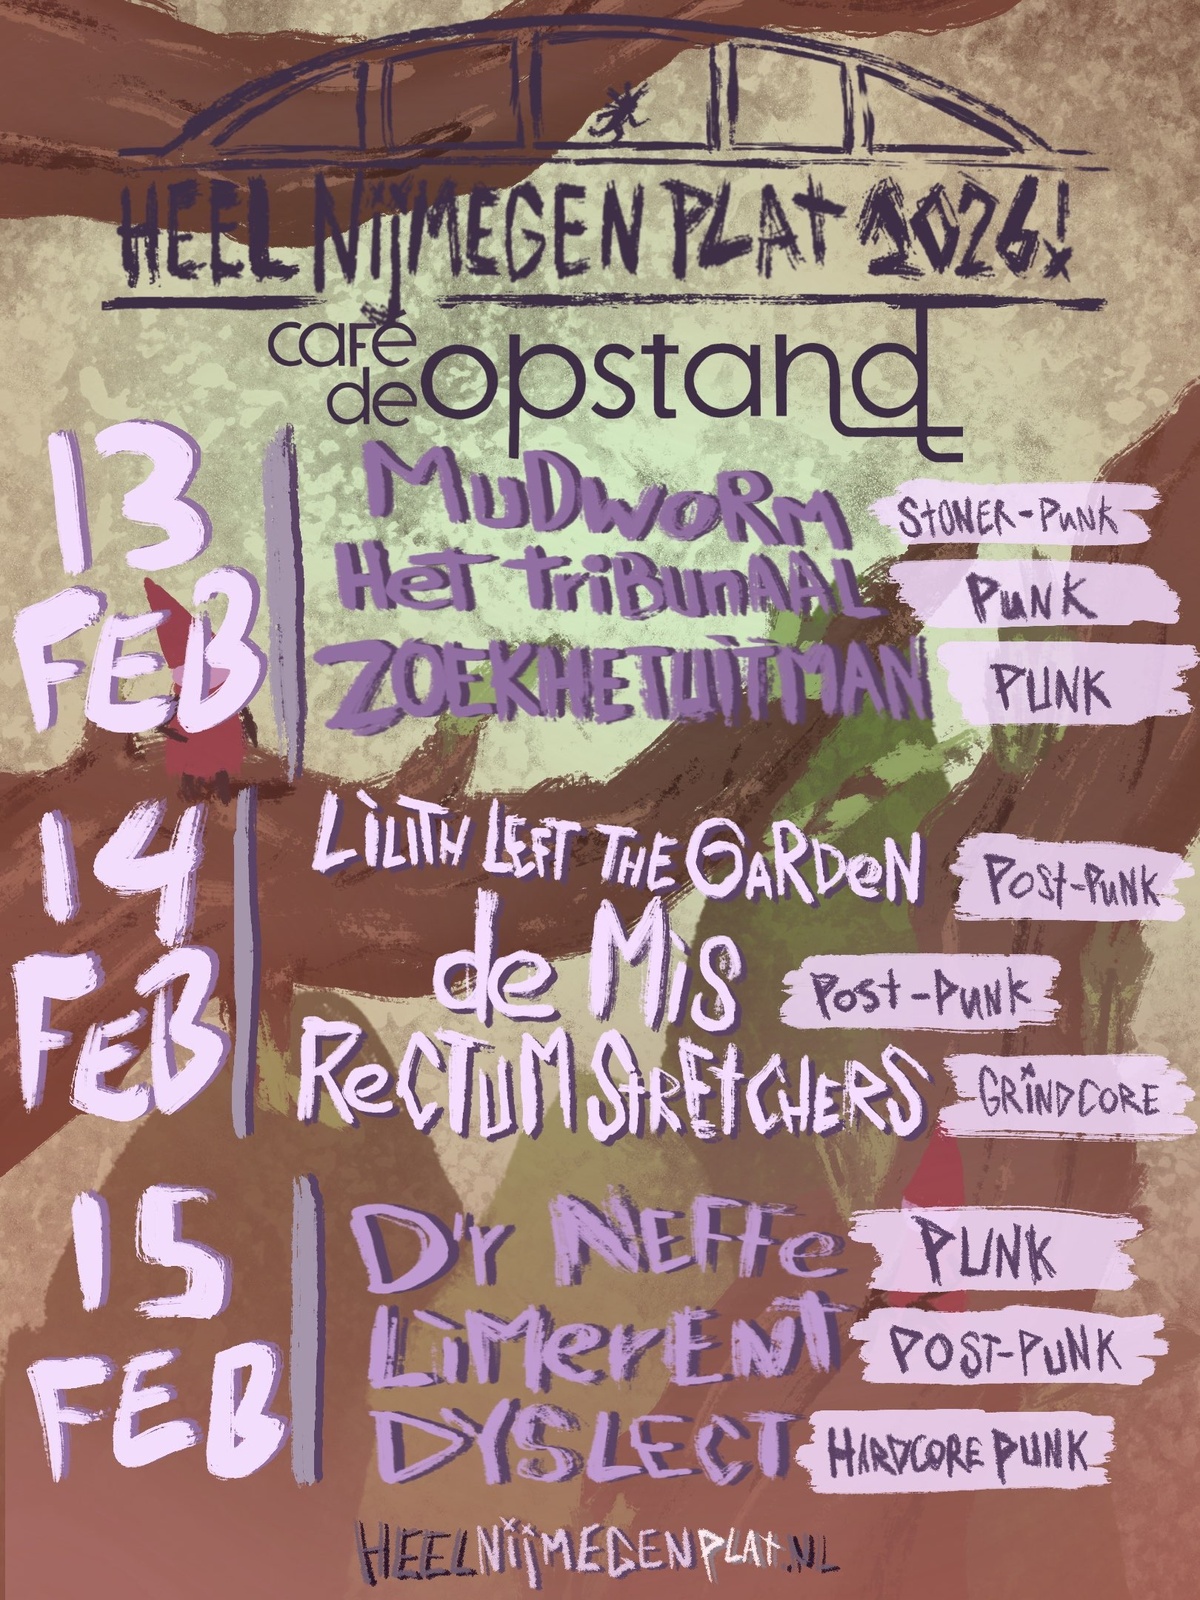 HEEL NIJMEGEN PLAT 2026!
cafe
de opstand
13
FEB
MUDWORM
STONER-PUNK
Het TRIBUNAAL
PUNK
ZOEKHETUITMAN
PUNK
14
FEB
LILITH LEFT THE GARDeN
POST-PUNK
de Mis
Post-Punk
ReCTUM StREtCHERS
GRINDCORE
15
FEB
D'r NEFFe
PUNK
LiMerENT
POST-PUNK
DYSLECT
HARDCORE PUNK
HEELNIJMEGENPLAT.NL